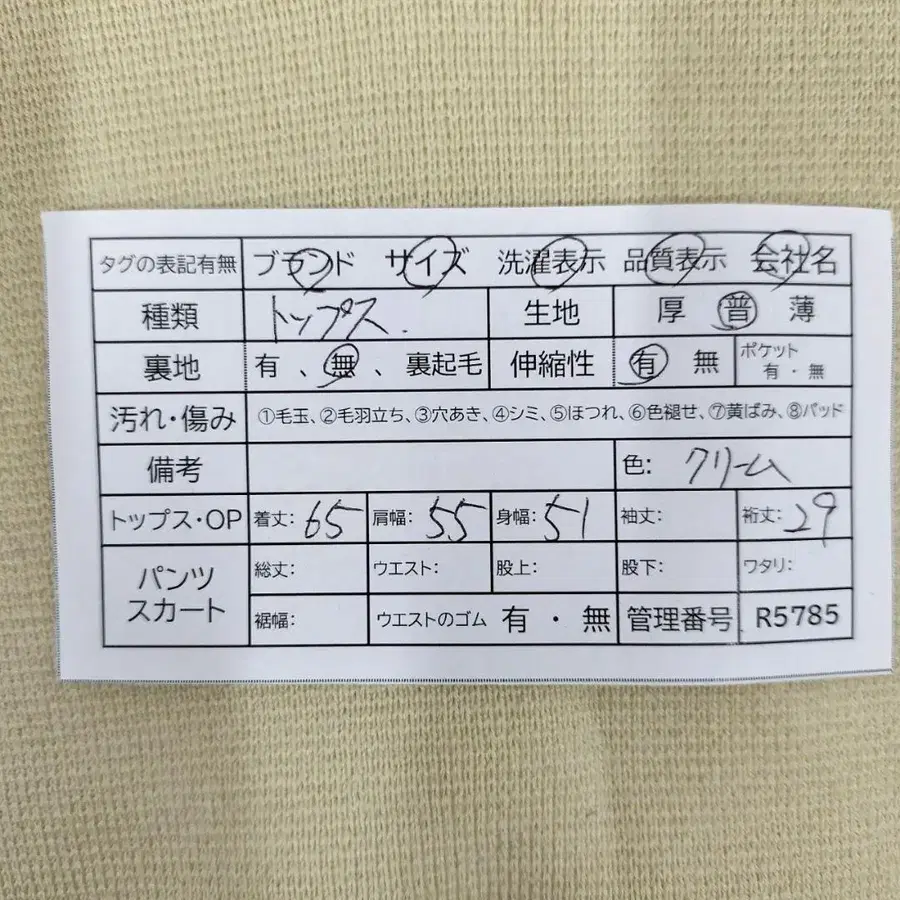 タグの表記有無 ブランド サイズ 洗濯表示 品質表示 会社名
種類 トップス. 生地 厚 普 薄
裏地 有 、無 、裏起毛 伸縮性 有 無 ポケット 有・無
汚れ・傷み ①毛玉、②毛羽立ち、③穴あき、④シミ、⑤ほつれ、⑥色褪せ、⑦黄ばみ、⑧パッド
備考 色: クリーム
トップス・OP 着丈: 65 肩幅: 55 身幅: 51 袖丈: 裄丈: 29
パンツ スカート 総丈: ウエスト: 股上: 股下: ワタリ:
裾幅: ウエストのゴム 有 ・ 無 管理番号 R5785